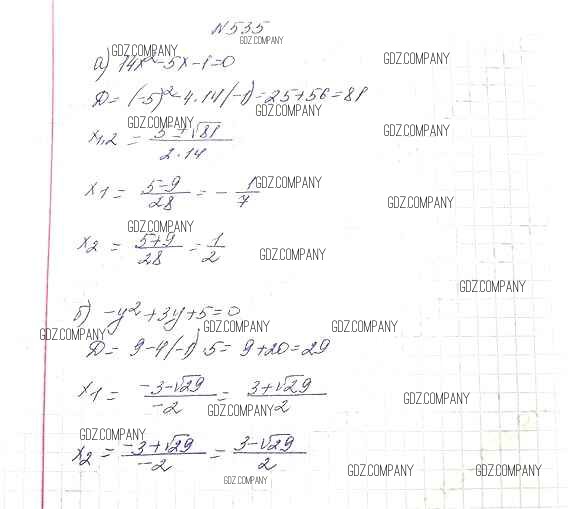 N535
GDZ.COMPANY
GDZ.COMPANY
GDZ.COMPANY
а) 14x²-5x-1=0
D= (-5)²-4·14(-1)=25+56=81
GDZ.COMPANY
GDZ.COMPANY
GDZ.COMPANY
x1,2 = 5±√81 / 2·14
x1 = 5-9 / 28 = - 1/7
GDZ.COMPANY
GDZ.COMPANY
GDZ.COMPANY
x2 = 5+9 / 28 = 1/2
GDZ.COMPANY
GDZ.COMPANY
б) -y²+3y+5=0
GDZ.COMPANY
GDZ.COMPANY
GDZ.COMPANY
D= 9-4(-1)·5= 9+20=29
x1 = -3-√29 / -2 = 3+√29 / 2
GDZ.COMPANY
GDZ.COMPANY
GDZ.COMPANY
x2 = -3+√29 / -2 = 3-√29 / 2
GDZ.COMPANY
GDZ.COMPANY
GDZ.COMPANY